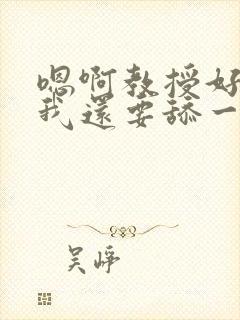 嗯啊教授好
我還要舔一
吴峥